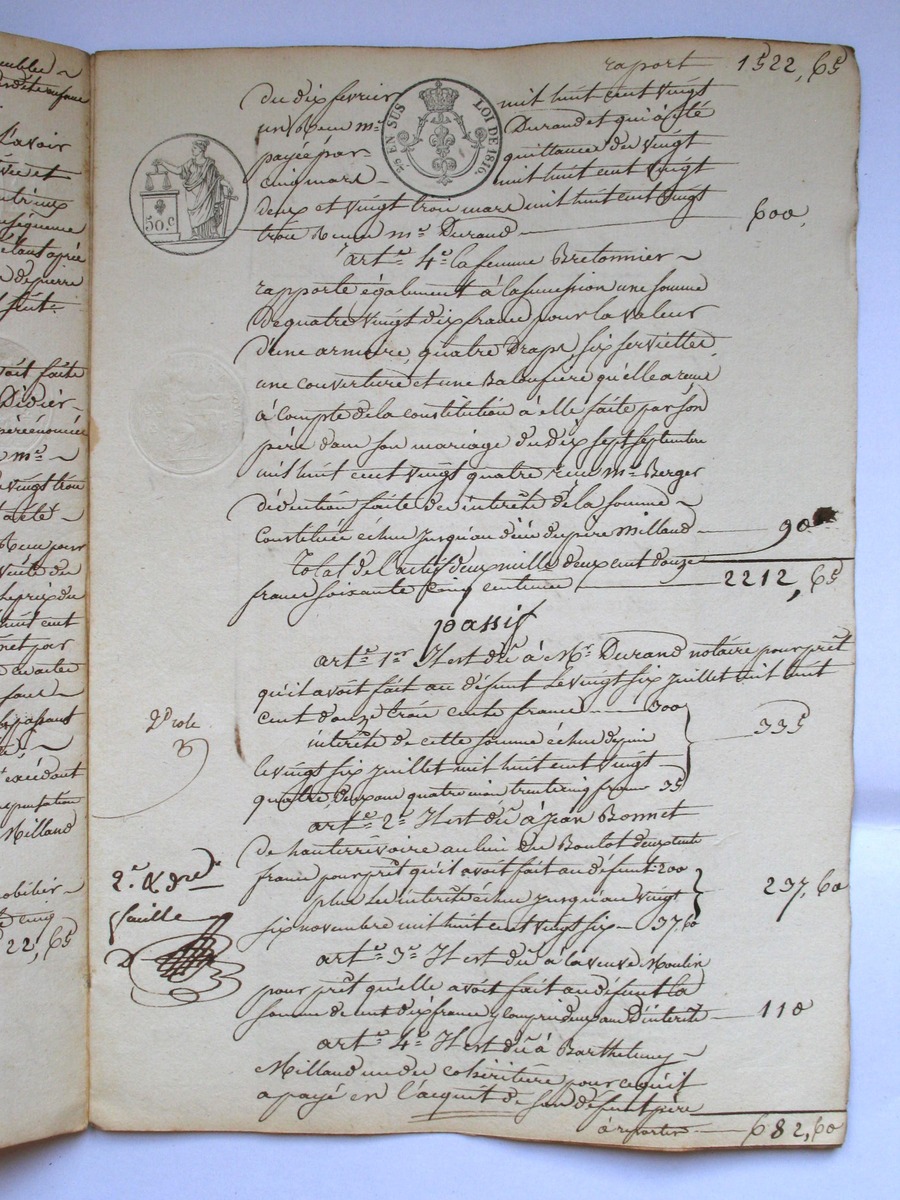 raport 1522,65
du dix fevrier mil huit cent vingt
un reçu mr. Durand et qui a été
payée par quittance du vingt
cinq mars mil huit cent vingt
deux et vingt trois mars mil huit cent vingt
trois reçu mr. Durand 600,
EN SUS LOI DE 1816
50 c
arte. 4e. la femme Bretonnier
rapporte également à la succession une somme
de quatre vingt dix francs pour la valeur
d'une armoire, quatre Draps, six serviettes,
une couverture et une Baloufière qu'elle a reçue
à compte de la constitution à elle faite par son
père dans son mariage du dix sept septembre
mil huit cent vingt quatre reçu mr. Berger
déduction faite des intérêts de la somme
constituée échus jusqu'au décès du père Milland 90
Total de l'actif deux mille deux cent douze
francs soixante cinq centimes 2212,65
passif
arte. 1er Il est dû à Mr. Durand notaire pour prêt
qu'il avoit fait au défunt le vingt six juillet mil huit
cent douze trois cents francs 300
intérêts de cette somme échus depuis
le vingt six juillet mil huit cent vingt
quatre deux ans quatre mois trente cinq francs 35
335
2d role
arte. 2e. Il est dû à Jean Bonnet
de hauterivoire au lieu du Boulot deux cents
francs pour prêt qu'il avoit fait au défunt 200
plus les intérêts échus jusqu'au vingt
six novembre mil huit cent vingt six 37,60
237,60
2e. & dre.
faille
arte. 3e. Il est dû à la veuve Moulin
pour prêt qu'elle avoit fait au défunt la
somme de cent dix francs y compris deux ans d'intérêts 110
arte. 4e. Il est dû à Barthelemy
Milland un des cohéritiers pour ce qu'il
a payé en l'acquit de son défunt père
à reporter 682,60